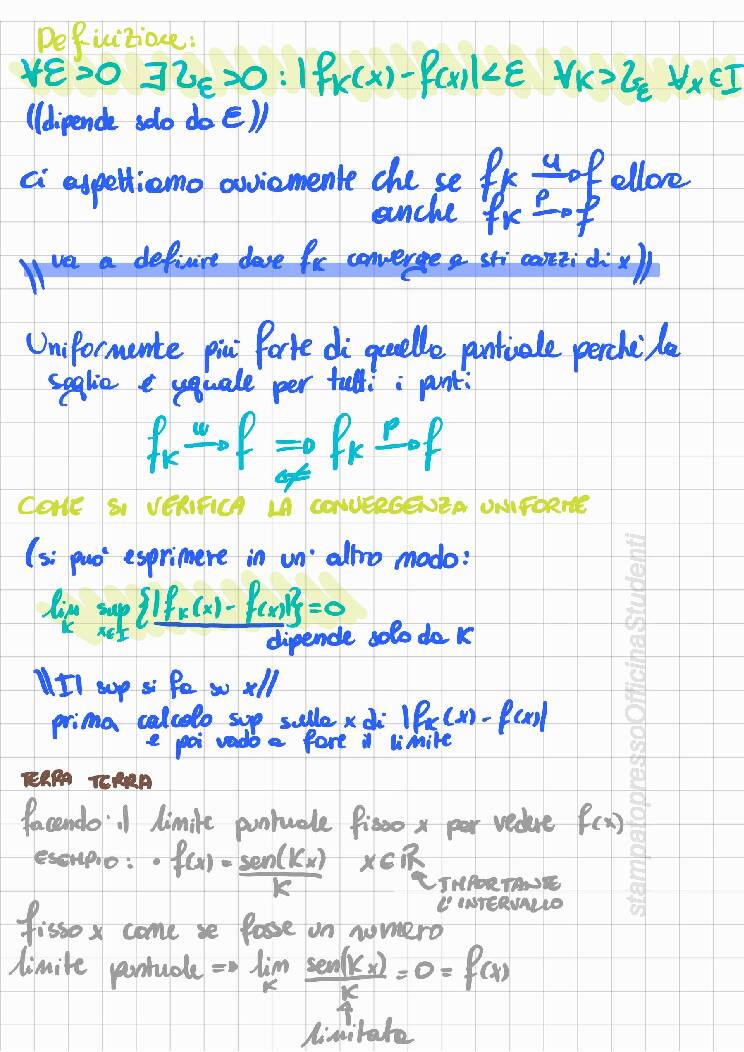 Definizione:
∀ε>0 ∃ℓ_ε>0 : |f_K(x)-f(x)|<ε ∀K>ℓ_ε ∀x∈I
((dipende solo da ε))
ci aspettiamo ovviamente che se f_K -u-> f allora
anche f_K -p-> f
\\ va a definire dove f_K converge e sti cazzi di x))
Uniformemente più forte di quella puntuale perché la
soglia è uguale per tutti i punti
f_K -u-> f ⇒ f_K -p-> f
⇍
COME SI VERIFICA LA CONVERGENZA UNIFORME
(si può esprimere in un' altro modo:
lim_K sup_{x∈I} {|f_K(x)-f(x)|}=0
dipende solo da K
\\Il sup si fa su x//
prima calcolo sup sulla x di |f_K(x)-f(x)|
e poi vado a fare il limite
TERRA TERRA
facendo il limite puntuale fisso x per vedere f(x)
ESEMPIO: • f(x) = sen(Kx)/K x∈ℝ
IMPORTANTE
L'INTERVALLO
fisso x come se fosse un numero
limite puntuale => lim_K sen(Kx)/K = 0 = f(x)
limitata
stampatopressoOfficinaStudenti